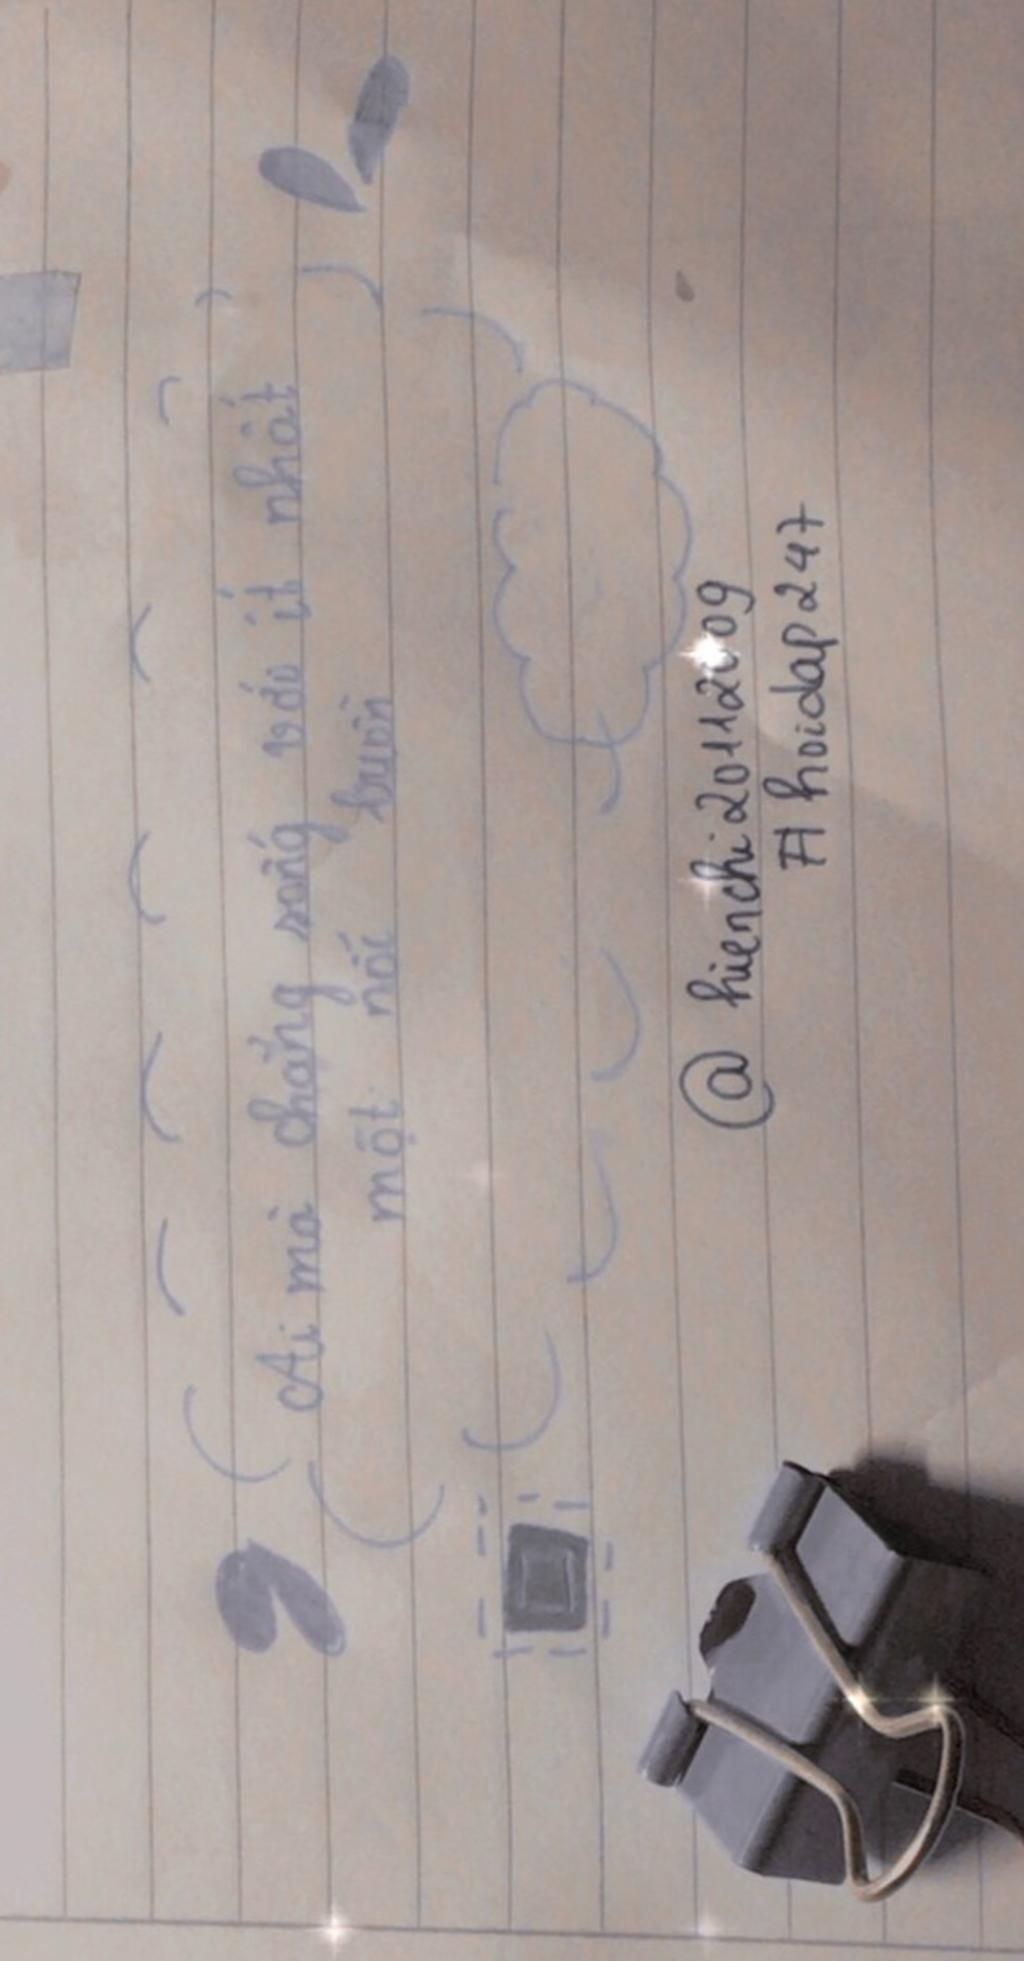 Ai mà chẳng sống với ít nhất
một nỗi buồn
@ hienchi20112009
# hoidap247